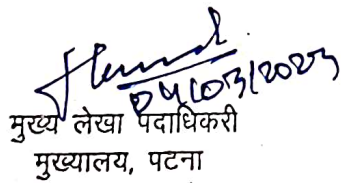 04/03/2023
मुख्य लेखा पदाधिकरी
मुख्यालय, पटना